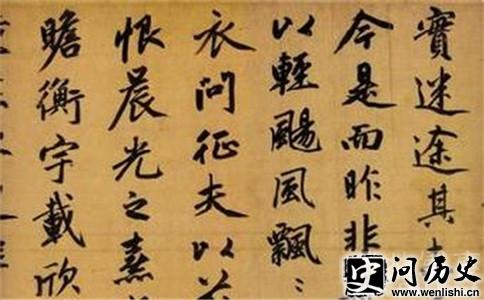 實迷途其
今是而昨非
以輕颺風飄〻
衣問征夫以
恨晨光之熹
瞻衡宇載欣
史
问历史
www.wenlishi.cn